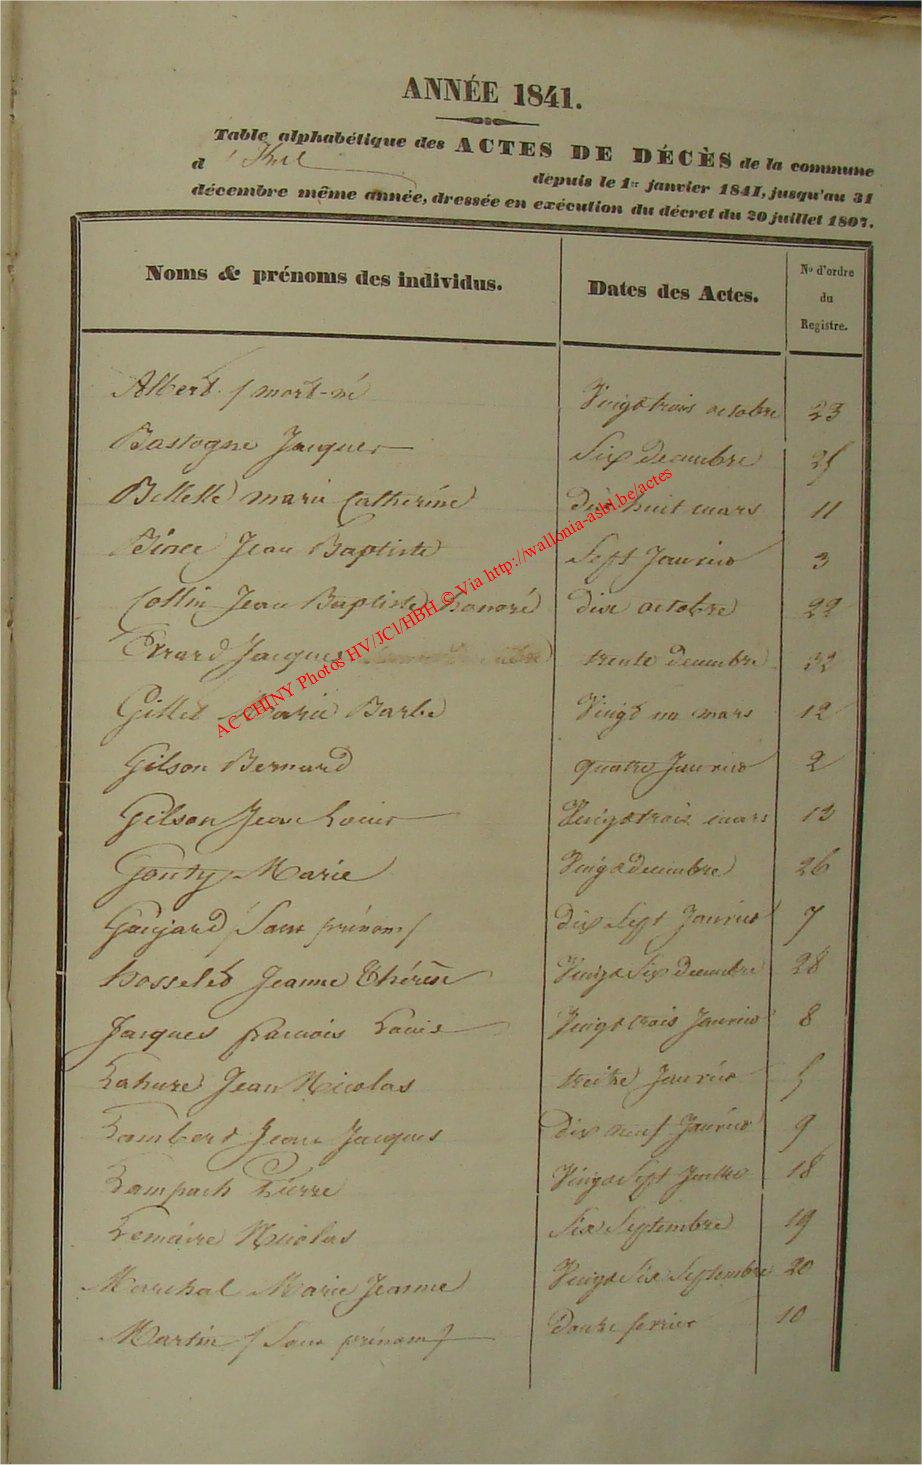 ANNÉE 1841.
Table alphabétique des ACTES DE DÉCÈS de la commune
d depuis le 1er janvier 1841, jusqu'au 31
décembre même année, dressée en exécution du décret du 20 juillet 1807.
Noms & prénoms des individus. Dates des Actes. No d'ordre du Registre.
Albert / mort-né Vingt trois octobre 23
Bastogne Jacques Six decembre 25
marie Catherine dix huit mars 11
Jean Baptiste Sept Janvier 3
Collin Jean Baptiste honoré dix octobre 22
Evrard Jacques trente decembre
Gillet Marie Barbe Vingt un mars 12
Gilson Bernard quatre Janvier 2
Gilson Jean Louis Vingt trois mars 13
Gonty Marie Vingt decembre 26
Goujard / Sans prénom / dix Sept Janvier 7
hosselet Jeanne Thérèse Vingt Six decembre 28
Jacques francois Louis Vingt trois Janvier 8
Lahure Jean Nicolas treize Janvier 5
Lambert Jean Jacques dix neuf Janvier 9
Lampach Pierre Vingt Sept Juillet 18
Lemaire Nicolas Six Septembre 19
Marchal Marie Jeanne Vingt Six Septembre 20
Martin / Sans prénom / Douze fevrier 10
AC CHINY Photos HV/JCl/HBH © Via http://wallonia-asbl.be/actes